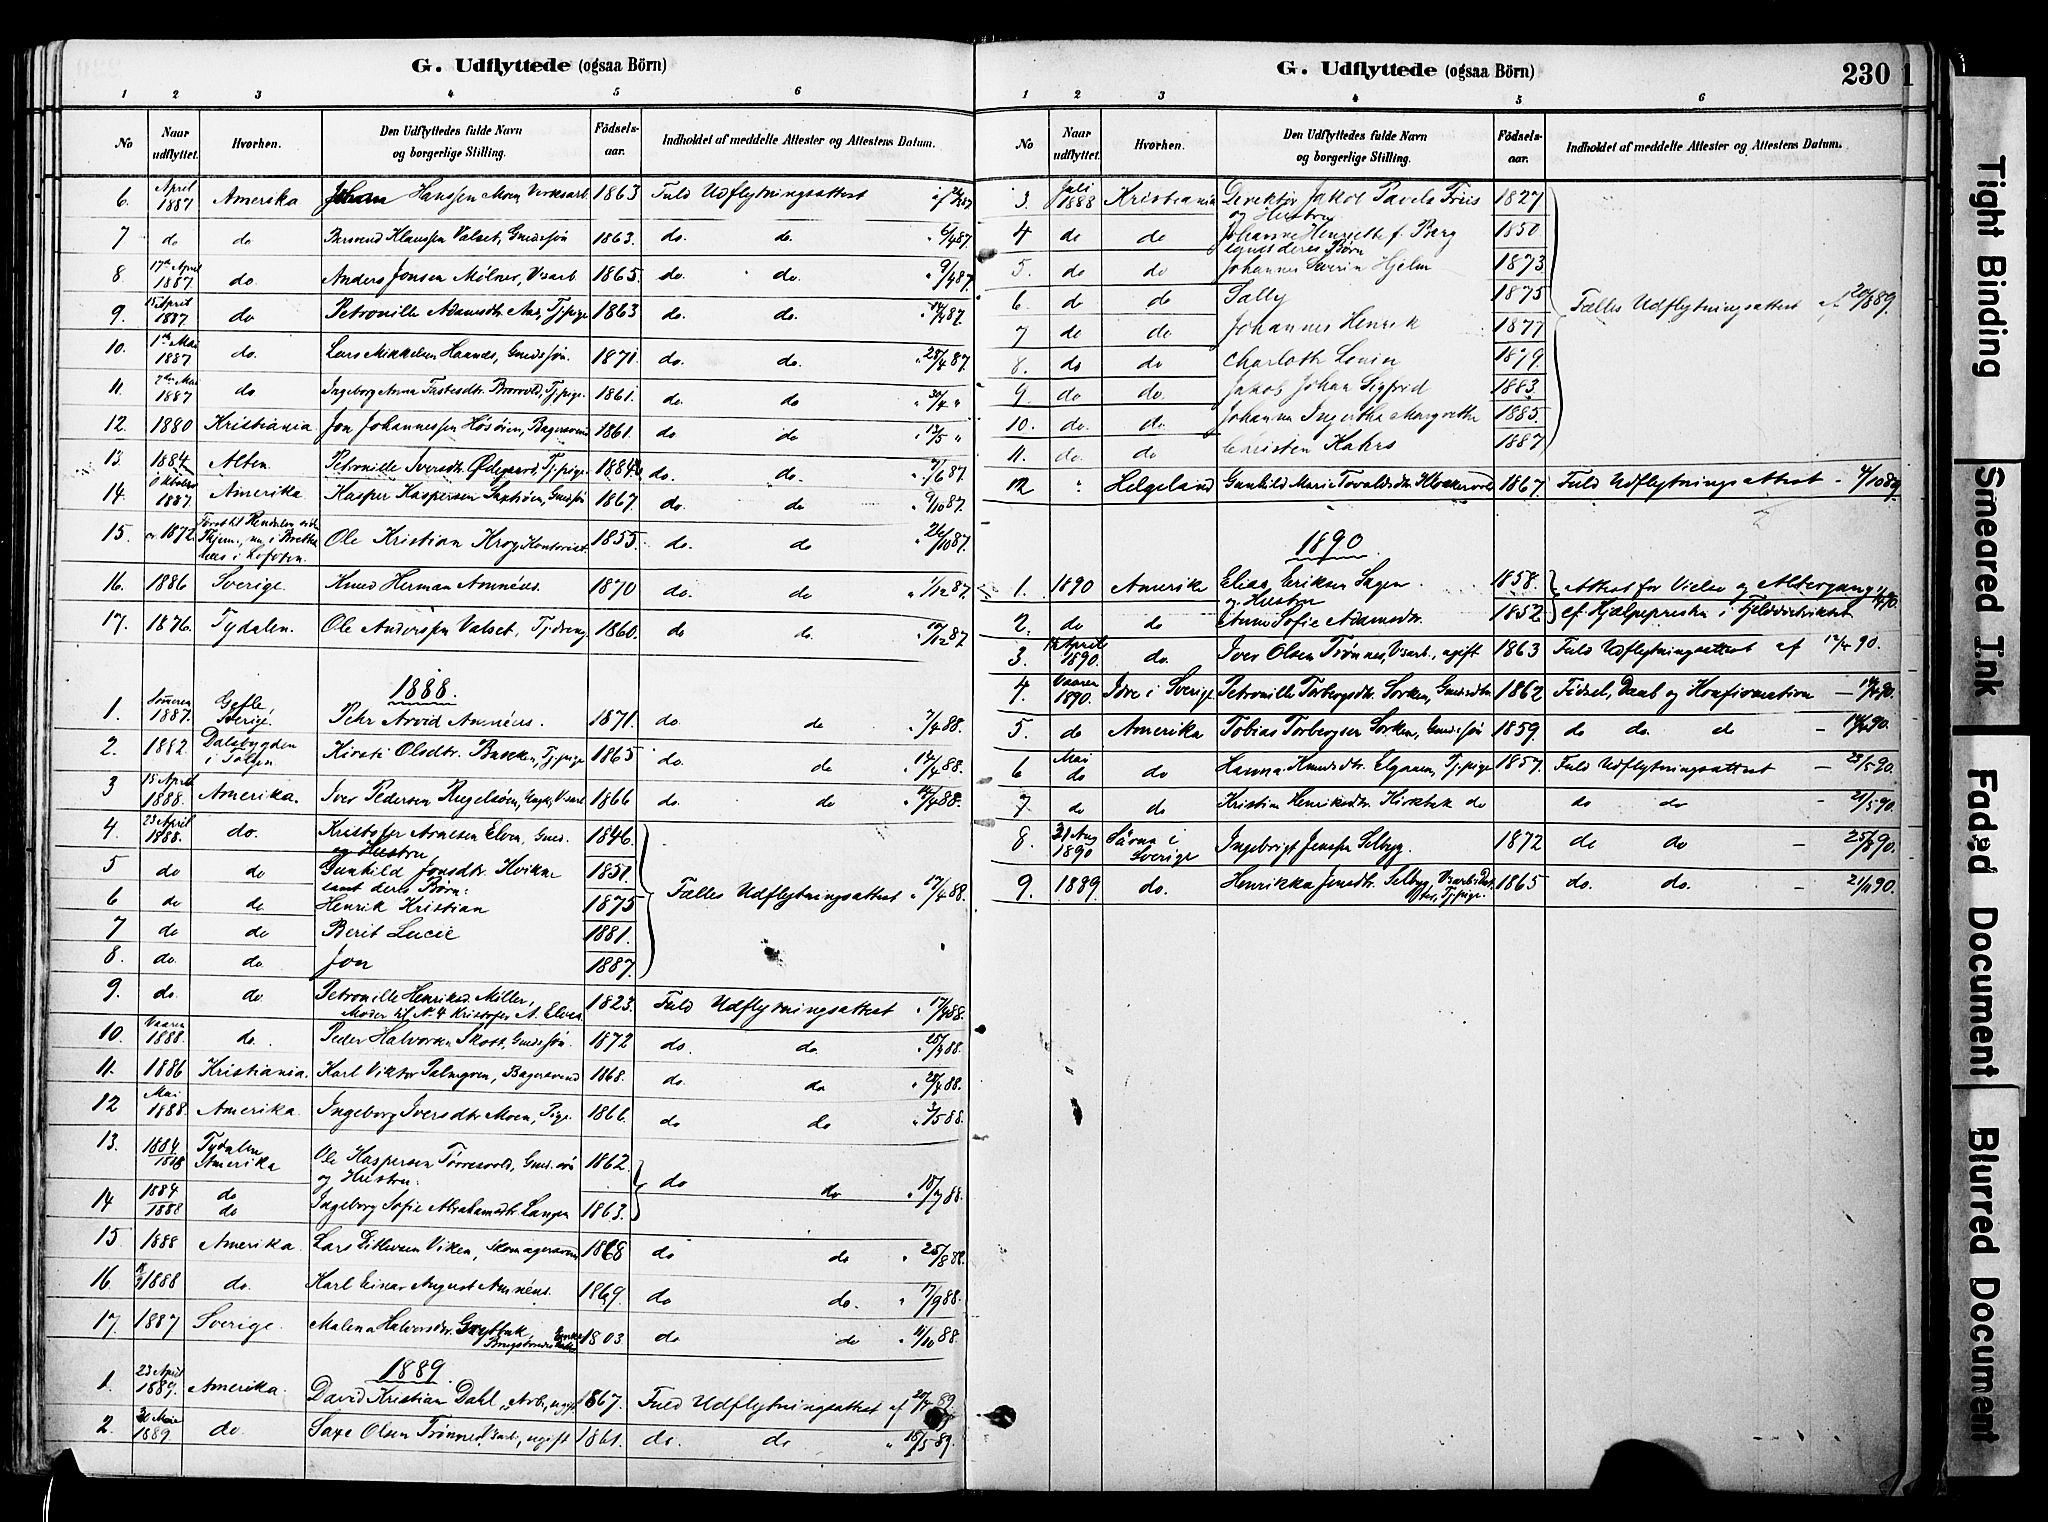 G. Udflyttede (ogsaa Börn)
1 2 3 4 5 6
No Naar udflyttet. Hvorhen. Den Udflyttedes fulde Navn og borgerlige Stilling. Födsels-aar. Indholdet af meddelte Attester og Attestens Datum.
6. April 1887 Amerika Johan Hanssen Moen 1863 Fuld Udflytningsattest af
7 do do Klaussen Valset, Gmdssøn 1863. do. do. " 6/4 87.
8 17de April 1887 do. Anders Jonsen Mølnes, V.arb 1865. do. do. " 9/4 87.
9. 15 April 1887 do Petronille Adamsdtr. Aas, Tj.pige 1863 do. do. " 14/4 87.
10. 1ste Mai 1887 do. Lars Mikkelsen Haanes, Gmdssøn. 1871. do. do. " 28/4 87.
11. Mai 1887 do Ingeborg Anna Tj.pige 1861. do. do " 30/4 "
12. 1880 Kristiania Jon Johannessen Høsøien, Bagersvend 1861. do do " 13/5 "
13. 1884 Alten Petronille Iversdtr. Ødegaard, Tj.pige do. do. " 7/6 87.
14. Oktober 1887. Amerika Kasper Kaspersen Gmdssøn 1867. do. do " 9/10 87.
15. 1872 Ole Kristian Krog, Kontorist. 1855. do. do " 26/10 87.
16. 1886 Sverige. Knud Herman Amnéus. 1870 do. do " 1/12 87.
17. 1876. Tydalen. Ole Anderssen Valset, Tj.dreng 1860. do do. " 12/12 87
1888.
1. Sommeren 1887. Gefle, Sverige. Pehr Arvid Amnéus. 1871. do. do " 7/4 88.
2. 1882. Dalsbygden i Tolgen Kirsti Olsdtr. Bakken, Tj.pige 1865 do. do " 12/4 88.
3 15 April 1888. Amerika. Iver Pedersen Rugelsøen, V.arb 1866 do. do " 14/4 88.
4. 23 April 1888. do. Kristofer Arnesen Elven, Gmd. 1846.
og Hustru
5 do do Gunhild Jonsdtr. Kvikne 1851.
samt deres Børn:
6 do do Henrik Kristian 1875 Fælles Udflytningsattest " 17/4 88.
7 do do Berit Lucie 1881.
8. do. do. Jon 1887.
9. do. do Petronille Henriksd. Møller, 1823. Fuld Udflytningsattest " 17/4 88.
Moder til N. 4 Kristofer A. Elven
10. Vaaren 1888. do. Peder Halvorsen Skott, Gmdssøn. 1872 do. do. " 25/4 88.
11. 1886 Kristiania. Karl Viktor Palmgren, Bagersvend 1868. do. do " 28/4 88.
12 Mai 1888. Amerika. Ingeborg Iversdtr Moen, Pige. 1866. do do " 3/5 88.
13. 1884/1888 Tydalen Amerika Ole Kaspersen Gmd.søn 1862.
og Hustru. do do " 18/7 88.
14 1884/1888 do do Ingeborg Sofie Abrahamsdtr. Langen 1863.
15. 1888 Amerika. Lars Ditlevsen Viken, Skomagersvend 1868 do do " 25/8 88.
16 1888 do. Karl Einar August Amnéus. 1869. do do. " 17/9 88.
17. 1887 Sverige. Malena Halvorsdtr. 1803. do do " 11/10 88.
1889.
1. 23 April 1889. Amerika. David Kristian Dahl, Arb., ugift 1867. Fuld Udflytningsattest af 20/4 89.
2. 30 Mai 1889 do. Saxe Olsen Trønnes, V.arb., ugift 1861. do. do " 18/5 89.
G. Udflyttede (ogsaa Börn) 230
1 2 3 4 5 6
No Naar udflyttet. Hvorhen. Den Udflyttedes fulde Navn og borgerlige Stilling. Födsels-aar. Indholdet af meddelte Attester og Attestens Datum.
3. Juli 1888 Kristiania Direktør Jakob Pavels Friis 1827
og Hustru
4 do do Johanne Henriette f. Berg 1850
samt deres Børn
5. do do Johannes Severin Hjelm 1873.
6. do do Sally 1875 Fælles Udflytningsattest af 20/8 89.
7 do do Johannes Henrik 1877
8. do do Charlotte Lovin 1879.
9 do do Jakob Johan Sigfrid 1883.
10. do. do. Johanna Ingertha Margrethe 1885.
11. do. do Christen Kahrs 1887
12 " Helgeland Gunhild Marie Tovaldsdtr. Klokkervold 1867. Fuld Udflytningsattest - 4/10 89.
1890.
1. 1890 Amerika Elias Eriksen Sagen. 1858. Attest for Vielse og Altergang
og Hustru
2. do do Anne Sofie Adamsdtr. 1852. af Hjælpepresten i Fjelddistriktet
3. April 1890. do. Iver Olsen Trønnes, V.arb., ugift 1863 Fuld Udflytningsattest af 12/4 90.
4. Vaaren 1890. Idre i Sverige Petronille Torbergsdtr. Sorken, Gmdsdtr 1862 Fødsel, Daab og Konfirmation
5. do Amerika Tobias Torbergsen Sorken, Gmdssøn 1859. do do. do
6 Mai do do Hanna Knudsdtr. Elgaaen, Tj.pige 1857. Fuld Udflytningsattest — 23/5 90.
7. do do Kristin Henriksdtr. Kirkbak do do do - 21/5 90.
8 31 Aug 1890 Särna i Sverige Ingebrigt Jenssen Selbyg. 1872 do do - 25/8 90.
9. 1889. do. Henrikka Jensdtr. Selbyg V.arb. Datter, Tj.pige. 1865 do. do. - 21/11 90.
1
Tight Binding
Smeared Ink
Faded Document
Blurred Document